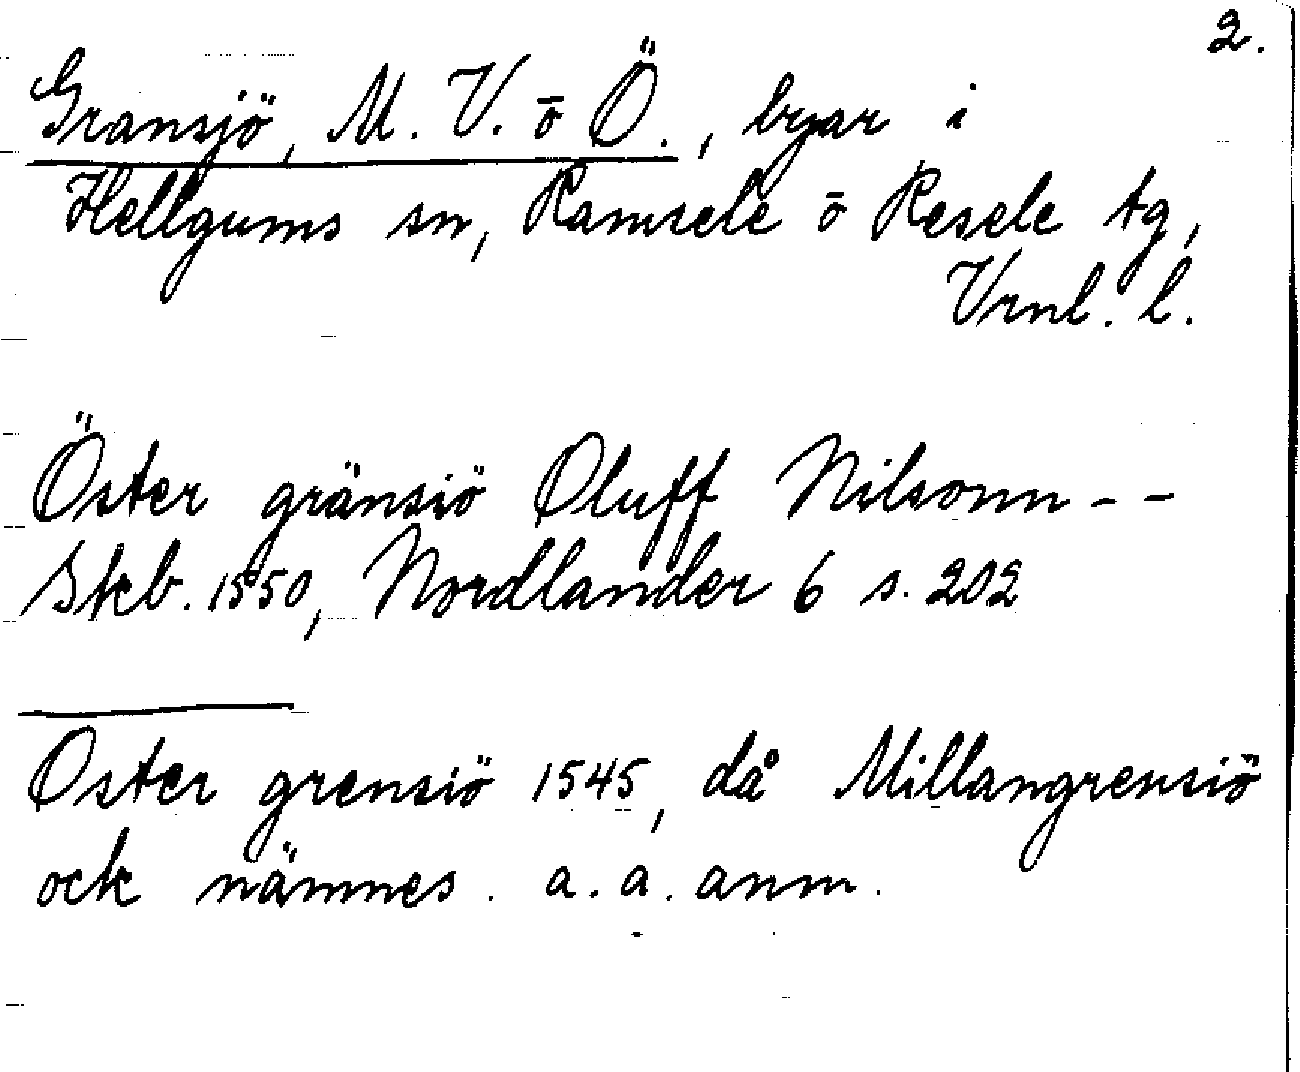 2.
Gransjö, M. V. ō Ö., byar i
Hellgums sn, Ramsele ō Resele tg,
Vrnl. l.
Öster gränsiö Oluff Nilsonn - -
Skb. 1550, Nordlander 6 s. 202
Oster grensiö 1545, då Millangrensiö
ock nämnes. a. a. anm.